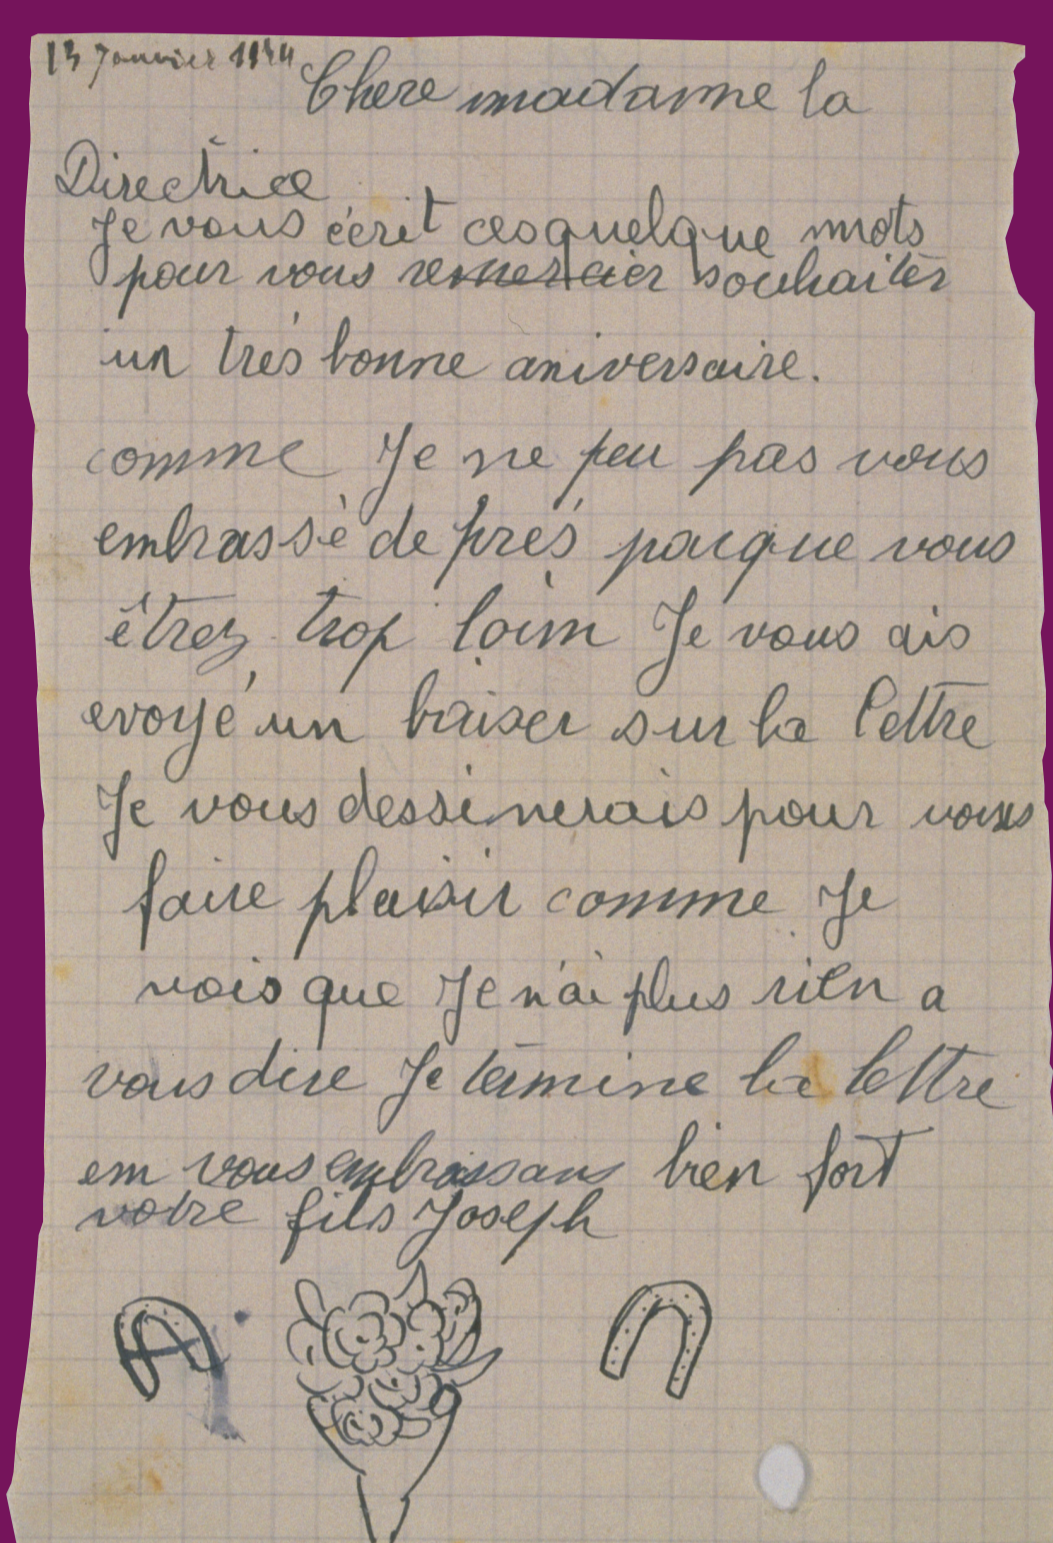 13 Janvier 1944
Chere madame la
Directrice
Je vous éérit ces quelque mots
pour vous remercier souhaiter
un trés bonne aniversaire.
comme Je ne peu pas vous
embrassè de prés pacque vous
êtrez trop loim Je vous ais
evoyé un baiser sur la lettre
Je vous dessinerais pour vous
faire plaisir comme Je
vois que Je n'ai plus rien a
vous dire Je termine la lettre
em vous embrassans bien fort
votre fils Joseph